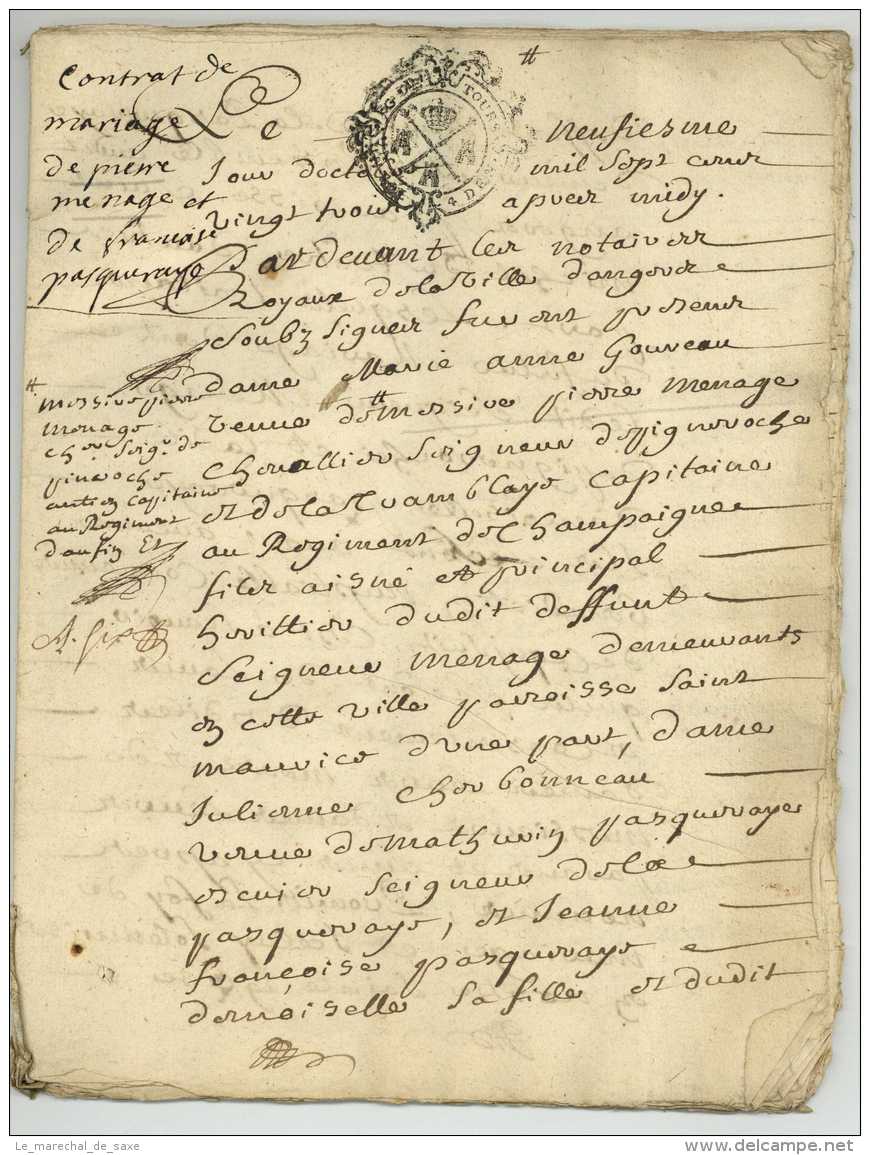 Contrat de
mariage
de pierre
menage et
de francoise
pasqueraye
Le neufiesme
Jour docto mil sept cens
vingt trois apres midy.
Pardevant les notaires
Royaux dela Ville dangers
Soubz Signez furent presens
dame Marie anne Gouveau
veuve de Messire pierre menage
Chevallier Seigneur de pigneroche
et de la Capitaine
au Regiment de Champaigne
fils aisné et principal
heritier dudit deffunt
Seigneur menage demeurants
en cette ville parroisse Saint
maurice dune part, dame
Julienne Charbonneau
veuve de Mathurin pasqueraye
escuier Seigneur dela
pasqueraye, et Jeanne
françoise pasqueraye
demoiselle sa fille et dudit
messire pierre
menage
cher. Seigr. de
pineroche
antien Capitaine
au Regiment
daufin Et
TOURS
Le_marechal_de_saxe
delcampe.net